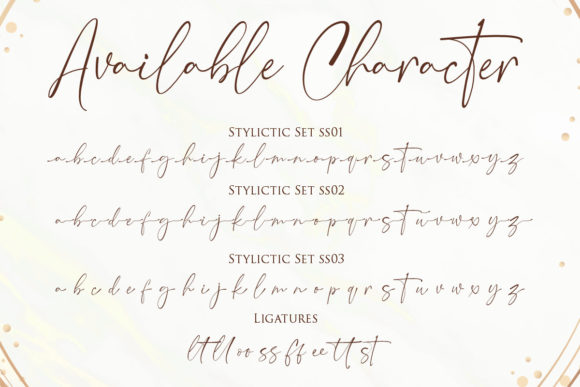 Available Character
Stylictic Set ss01
a b c d e f g h i j k l m n o p q r s t u v w x y z
Stylictic Set ss02
a b c d e f g h i j k l m n o p q r s t u v w x y z
Stylictic Set ss03
a b c d e f g h i j k l m n o p q r s t u v w x y z
Ligatures
lt ll oo ss ff ee tt st